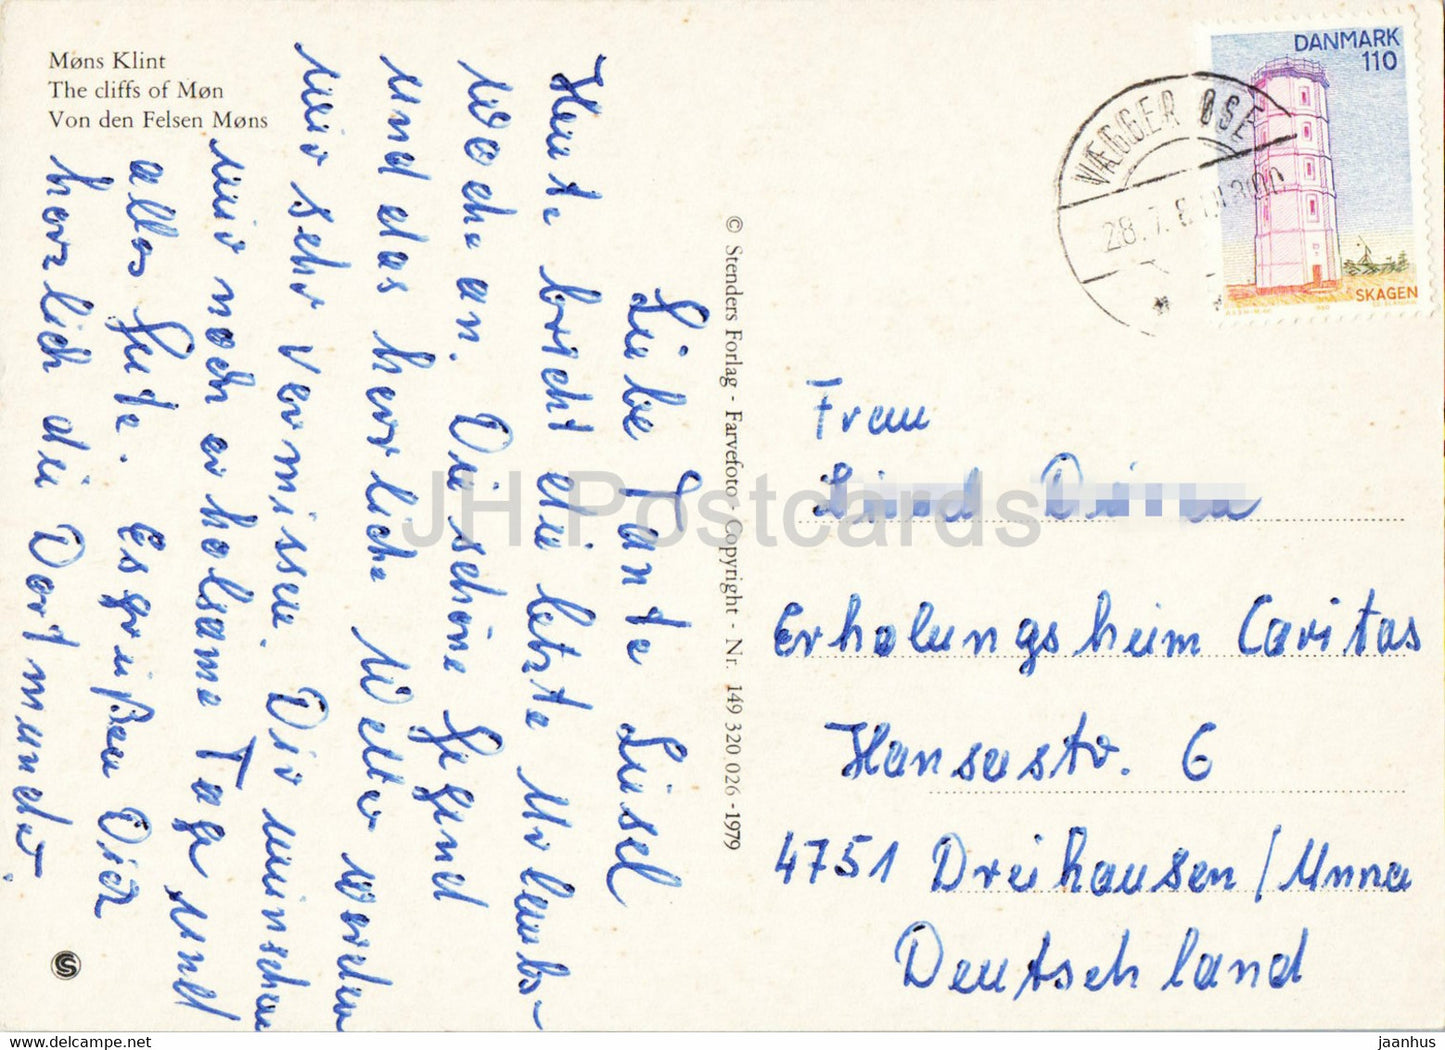 Møns Klint
The cliffs of Møn
Von den Felsen Møns
Liebe Tante Liesel
Heute bricht die letzte Urlaubs-
woche an. Die schöne Gegend
und das herrliche Wetter werden
wir sehr vermissen. Dir wünschen
wir noch erholsame Tage und
alles Gute. Es grüßen Dich
herzlich die Dortmunder.
© Stenders Forlag - Farvefoto - Copyright - Nr. 149 320 026 - 1979
DANMARK
110
SKAGEN
VÆGGERLØSE
28.7.8
Frau
Erholungsheim Caritas
Hansastr. 6
4751 Dreihausen/Unna
Deutschland
JH Postcards
hipstamp.com
jaanhus